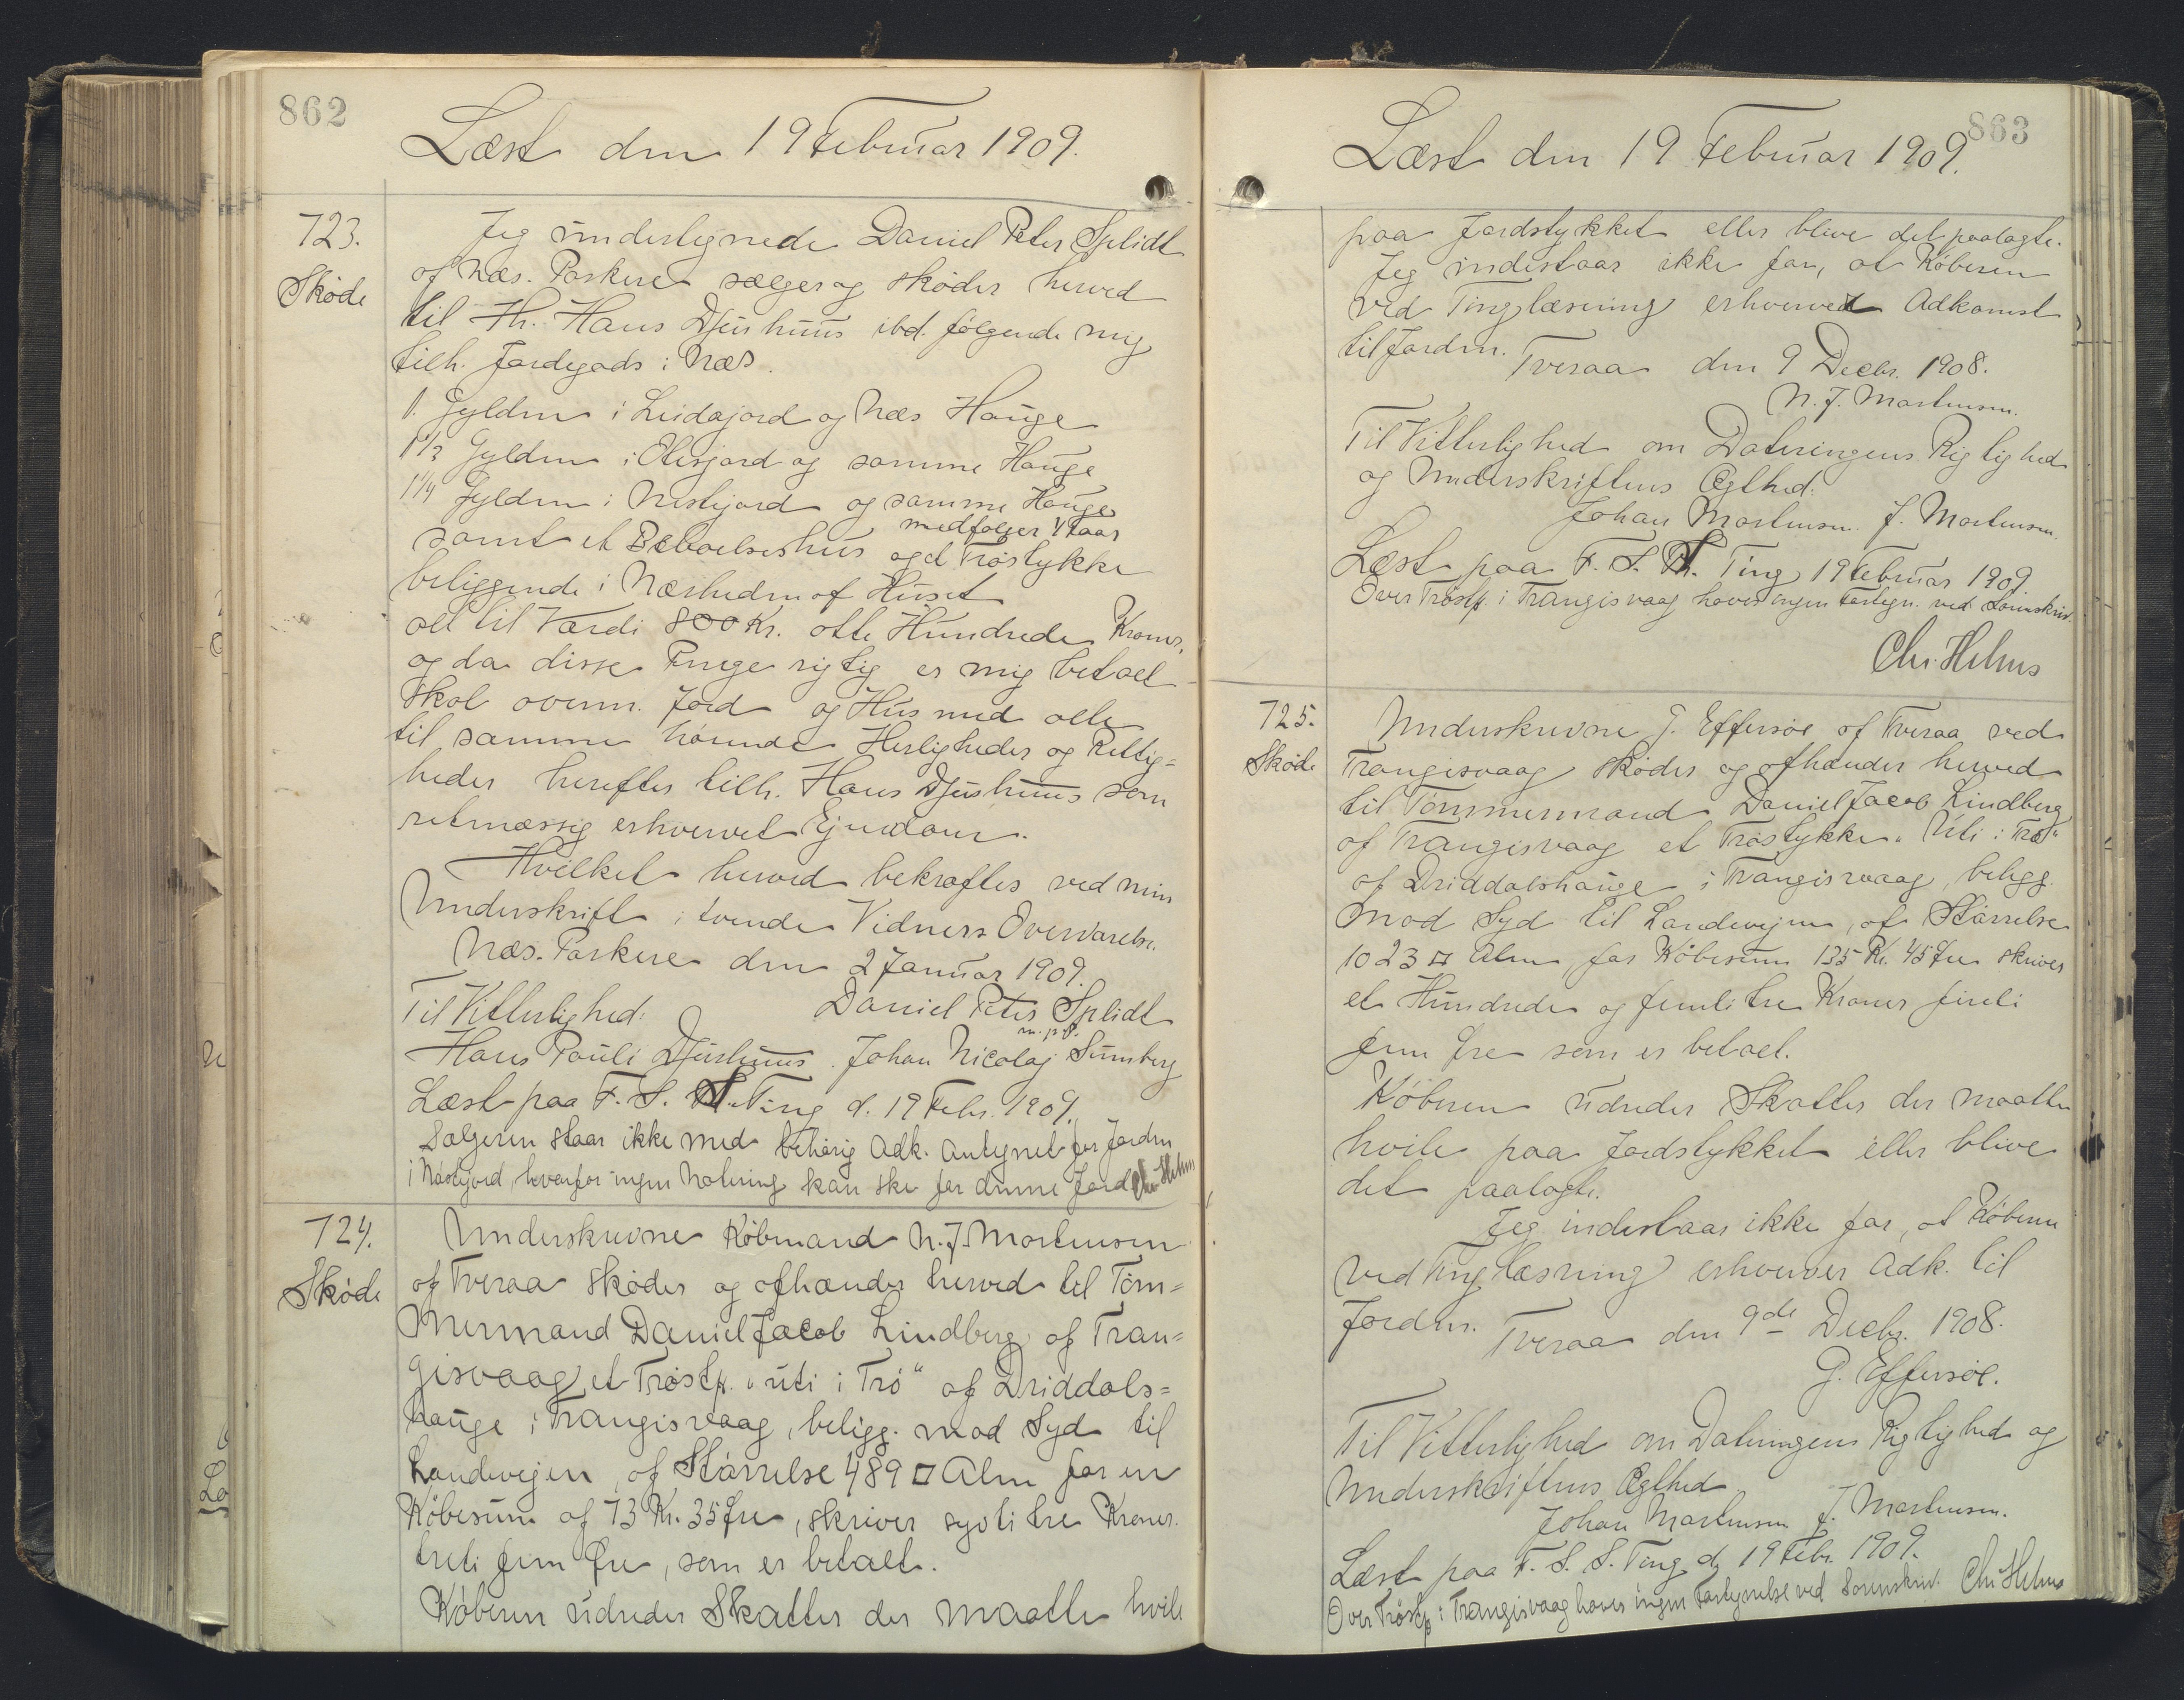 862
Læst den 19 Februar 1909.
723.
Skøde
Jeg undertegnede Daniel Peter Splidt
af Næs. Porkere sælger og skøder herved
til Hr. Hans Djurhuus ibd. følgende mig
tilh. Jordegods i Næs.
1. Gylden i Lirdajord og Næs Hauge
1 1/3 Gylden i Olisjord og samme Hauge
1 1/4 Gylden i Nestijord og samme Hauge
samt et Beboelseshus medfølger 1 Faar
og et Trøstykke
beliggende i Nærheden af Huset
alt til Værdi 800 Kr. otte Hundrede Kroner,
og da disse Penge rigtig er mig betalt
skal ovenn. Jord og Hus med alle
til samme hørende Herligheder og Rettig=
heder herefter tilh. Hans Djurhuus som
retmæssig erhvervet Ejendom.
Hvilket herved bekræftes ved min
Underskrift i tvende Vidners Overværelse.
Næs. Porkere den 2 Januar 1909.
Til Vitterlighed: Daniel Peter Splidt
m. p. P.
Hans Pauli Djurhuus. Johan Nicolaj Sumberg
Læst paa F. S. S. Ting d. 19 Febr. 1909.
Sælgeren staar ikke med behørig Adk. antegnet for Jorden
i Nástijord, hvorfor ingen Notering kan ske for denne Jord Chr. Helms
724.
Skøde
Underskrevne Købmand N. J. Mortensen
af Tveraa skøder og afhænder herved til Tøm=
mermand Daniel Jacob Lindberg af Tran=
gisvaag et Trøstk. "uti i Trø" af Driddals=
hauge i Trangisvaag, beligg. mod Syd til
Landevejen, af Størrelse 489 □ Alen for en
Købesum af 73 Kr. 35 Øre, skriver syvti tre Kroner
treti fem Øre, som er betalt.
Køberen udreder Skatter der maatte hvile
863
Læst den 19 Februar 1909.
paa Jordstykket eller blive det paalagte.
Jeg indestaar ikke for, at Køberen
ved Tinglæsning erhverver Adkomst
til Jorden.
Tveraa den 9 Decbr. 1908.
N. J. Mortensen.
Til Vitterlighed om Dateringens Rigtighed
og Underskriftens Ægthed:
Johan Mortensen. J. Mortensen.
Læst paa F. S. S. Ting 19 Februar 1909.
Over Trøstk. i Trangisvaag haves ingen Fortegn. ved Sorenskriv.
Chr. Helms
725.
Skøde
Underskrevne G. Effersøe af Tveraa ved
Trangisvaag skøder og afhænder herved
til Tømmermand Daniel Jacob Lindberg
af Trangisvaag et Trøstykke "Uti i Trø"
af Driddalshauge i Trangisvaag, beligg.
mod Syd til Landevejen, af Størrelse
1023 □ Alen, for Købesum 135 Kr. 45 Øre skriver
et Hundrede og femti tre Kroner fireti
fem Øre som er betalt.
Køberen udreder Skatter der maatte
hvile paa Jordstykket eller blive
det paalagte.
Jeg indestaar ikke for, at Køberen
ved Tinglæsning erhverver Adk. til
Jorden.
Tveraa den 9de Decbr. 1908.
G. Effersøe.
Til Vitterlighed om Dateringens Rigtighed og
Underskriftens Ægthed
Johan Mortensen J. Mortensen.
Læst paa F. S. S. Ting d. 19 Febr. 1909.
Over Trøstk. i Trangisvaag haves ingen Fortegnelse ved Sorenskriv. Chr. Helms